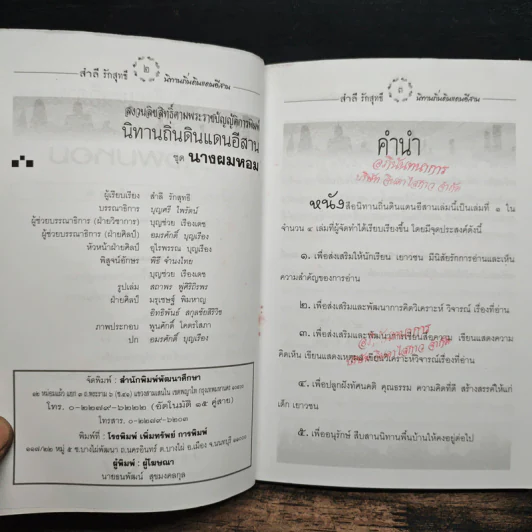 สำลี รักสุทธี ๒ นิทานถิ่นดินแดนอีสาน
สงวนลิขสิทธิ์ตามพระราชบัญญัติการพิมพ์
นิทานถิ่นดินแดนอีสาน
ชุด นางผมหอม
ผู้เรียบเรียง สำลี รักสุทธี
บรรณาธิการ บุญศรี ไพรัตน์
ผู้ช่วยบรรณาธิการ (ฝ่ายวิชาการ) บุญช่วย เรืองเดช
ผู้ช่วยบรรณาธิการ (ฝ่ายศิลป์) อมรศักดิ์ บุญเรือง
หัวหน้าฝ่ายศิลป์ อุไรพรรณ บุญเรือง
พิสูจน์อักษร พิธี จำนงไทย
บุญช่วย เรืองเดช
รูปเล่ม สถาพร
ฝ่ายศิลป์
ภาพประกอบ พูนศักดิ์ โคตรโสภา
ปก อมรศักดิ์ บุญเรือง
จัดพิมพ์ : สำนักพิมพ์พัฒนาศึกษา
โทร. ๐-๒๒๗๙-๖๒๒๒ (อัตโนมัติ ๑๕ คู่สาย)
โทรสาร. ๐-๒๒๗๙-๖๒๐๓
พิมพ์ที่ : โรงพิมพ์ เพิ่มทรัพย์ การพิมพ์
ผู้พิมพ์ : ผู้โฆษณา
นายธนพัฒน์ สุขมงคลกุล
สำลี รักสุทธี ๓ นิทานถิ่นดินแดนอีสาน
คำนำ
อภินันทนาการ
หนังสือนิทานถิ่นดินแดนอีสานเล่มนี้เป็นเล่มที่ ๑ ใน
จำนวน ๔ เล่มที่ผู้จัดทำได้เรียบเรียงขึ้น โดยมีจุดประสงค์ดังนี้
๑. เพื่อส่งเสริมให้นักเรียน เยาวชน มีนิสัยรักการอ่านและเห็น
ความสำคัญของการอ่าน
๒. เพื่อส่งเสริมและพัฒนาการคิดวิเคราะห์ วิจารณ์ เรื่องที่อ่าน
๓. เพื่อส่งเสริมและพัฒนาการเขียนสื่อความ เขียนแสดงความ
คิดเห็น เขียนแสดงเหตุผล เขียนวิเคราะห์วิจารณ์เรื่องที่อ่าน
อภินันทนาการ
๔. เพื่อปลูกฝังทัศนคติ คุณธรรม ความคิดที่ดี สร้างสรรค์ให้แก่
เด็ก เยาวชน
๕. เพื่ออนุรักษ์ สืบสานนิทานพื้นบ้านให้คงอยู่ต่อไป